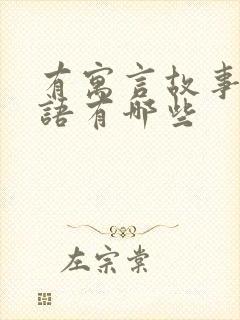 有寓言故事
語有哪些
左宗棠